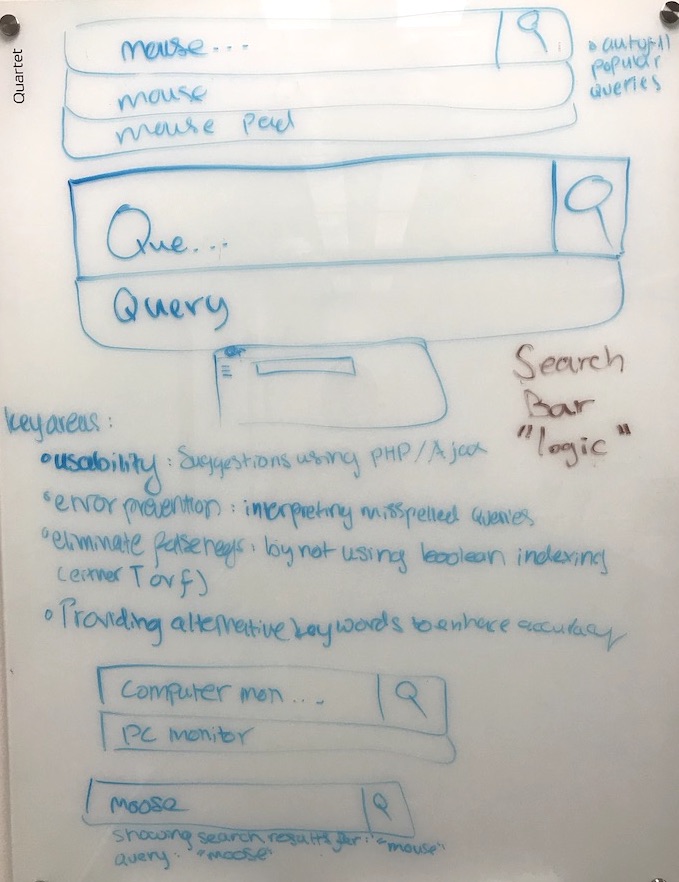 Quartet
mouse...
mouse
mouse pad
• autofill
popular
queries
Que...
Query
Search
Bar
"logic"
key areas:
• usability: Suggestions using PHP/Ajax
• error prevention: interpreting misspelled queries
• eliminate false negs: by not using boolean indexing
(either T or f)
• Providing alternative keywords to enhance accuracy
Computer mon...
PC monitor
Moose
showing search results for: "mouse"
query: "moose"